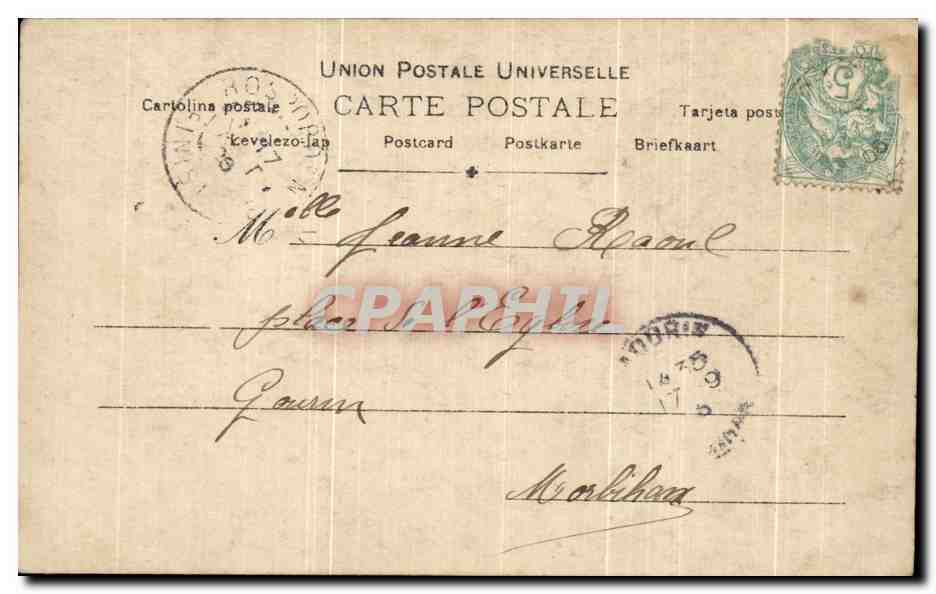 UNION POSTALE UNIVERSELLE
Cartolina postale CARTE POSTALE Tarjeta post
Levelezo-lap Postcard Postkarte Briefkaart
ROSPORDEN
5
05
Mlle Jeanne Raoul
CPAPHIL
place de l'Eglise
Gourin
Morbihan